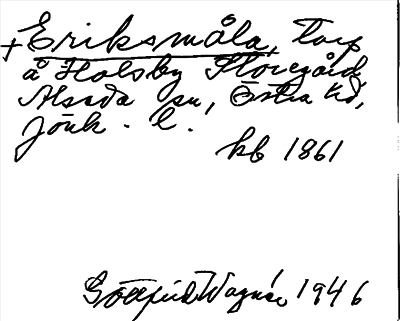 + Eriksmåla, Torp
å Holsby Storegård,
Alseda sn, Östra hd,
Jönk. l.
kb 1861
Gottfrid Wagnér 1946